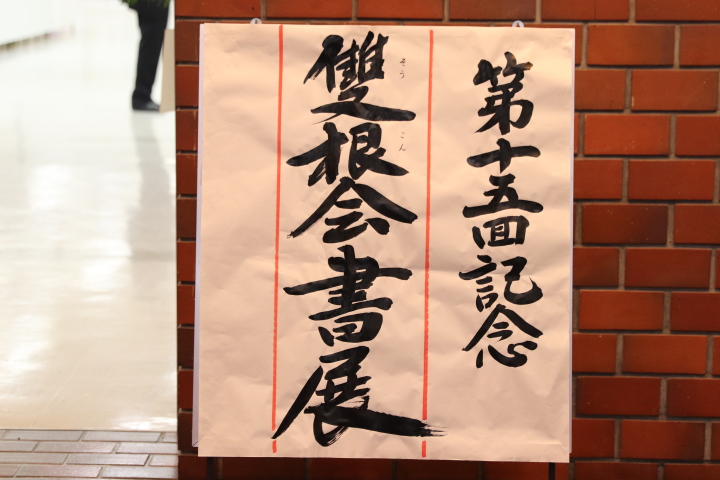 第十五回記念
雙根会書展
そうこん